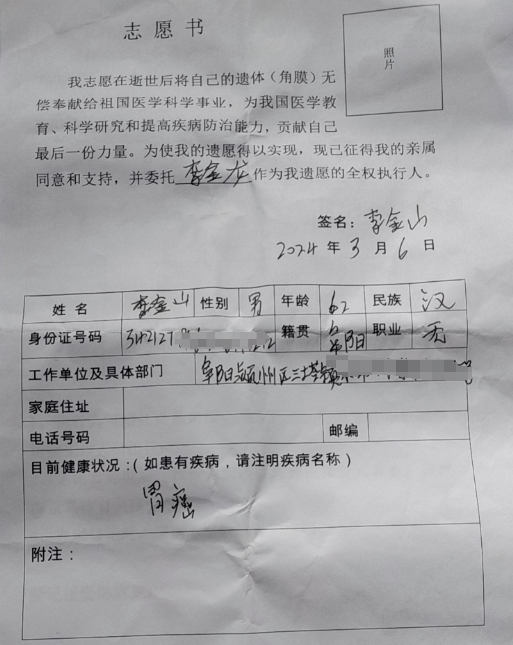 志愿书
照片
我志愿在逝世后将自己的遗体（角膜）无
偿奉献给祖国医学科学事业，为我国医学教
育、科学研究和提高疾病防治能力，贡献自己
最后一份力量。为使我的遗愿得以实现，现已征得我的亲属
同意和支持，并委托 李金龙 作为我遗愿的全权执行人。
签名：李金山
2024 年 3 月 6 日
姓名 李金山 性别 男 年龄 62 民族 汉
身份证号码 籍贯 阜阳 职业 无
工作单位及具体部门 阜阳 州区三塔镇
家庭住址
电话号码 邮编
目前健康状况：（如患有疾病，请注明疾病名称）
胃癌
附注：